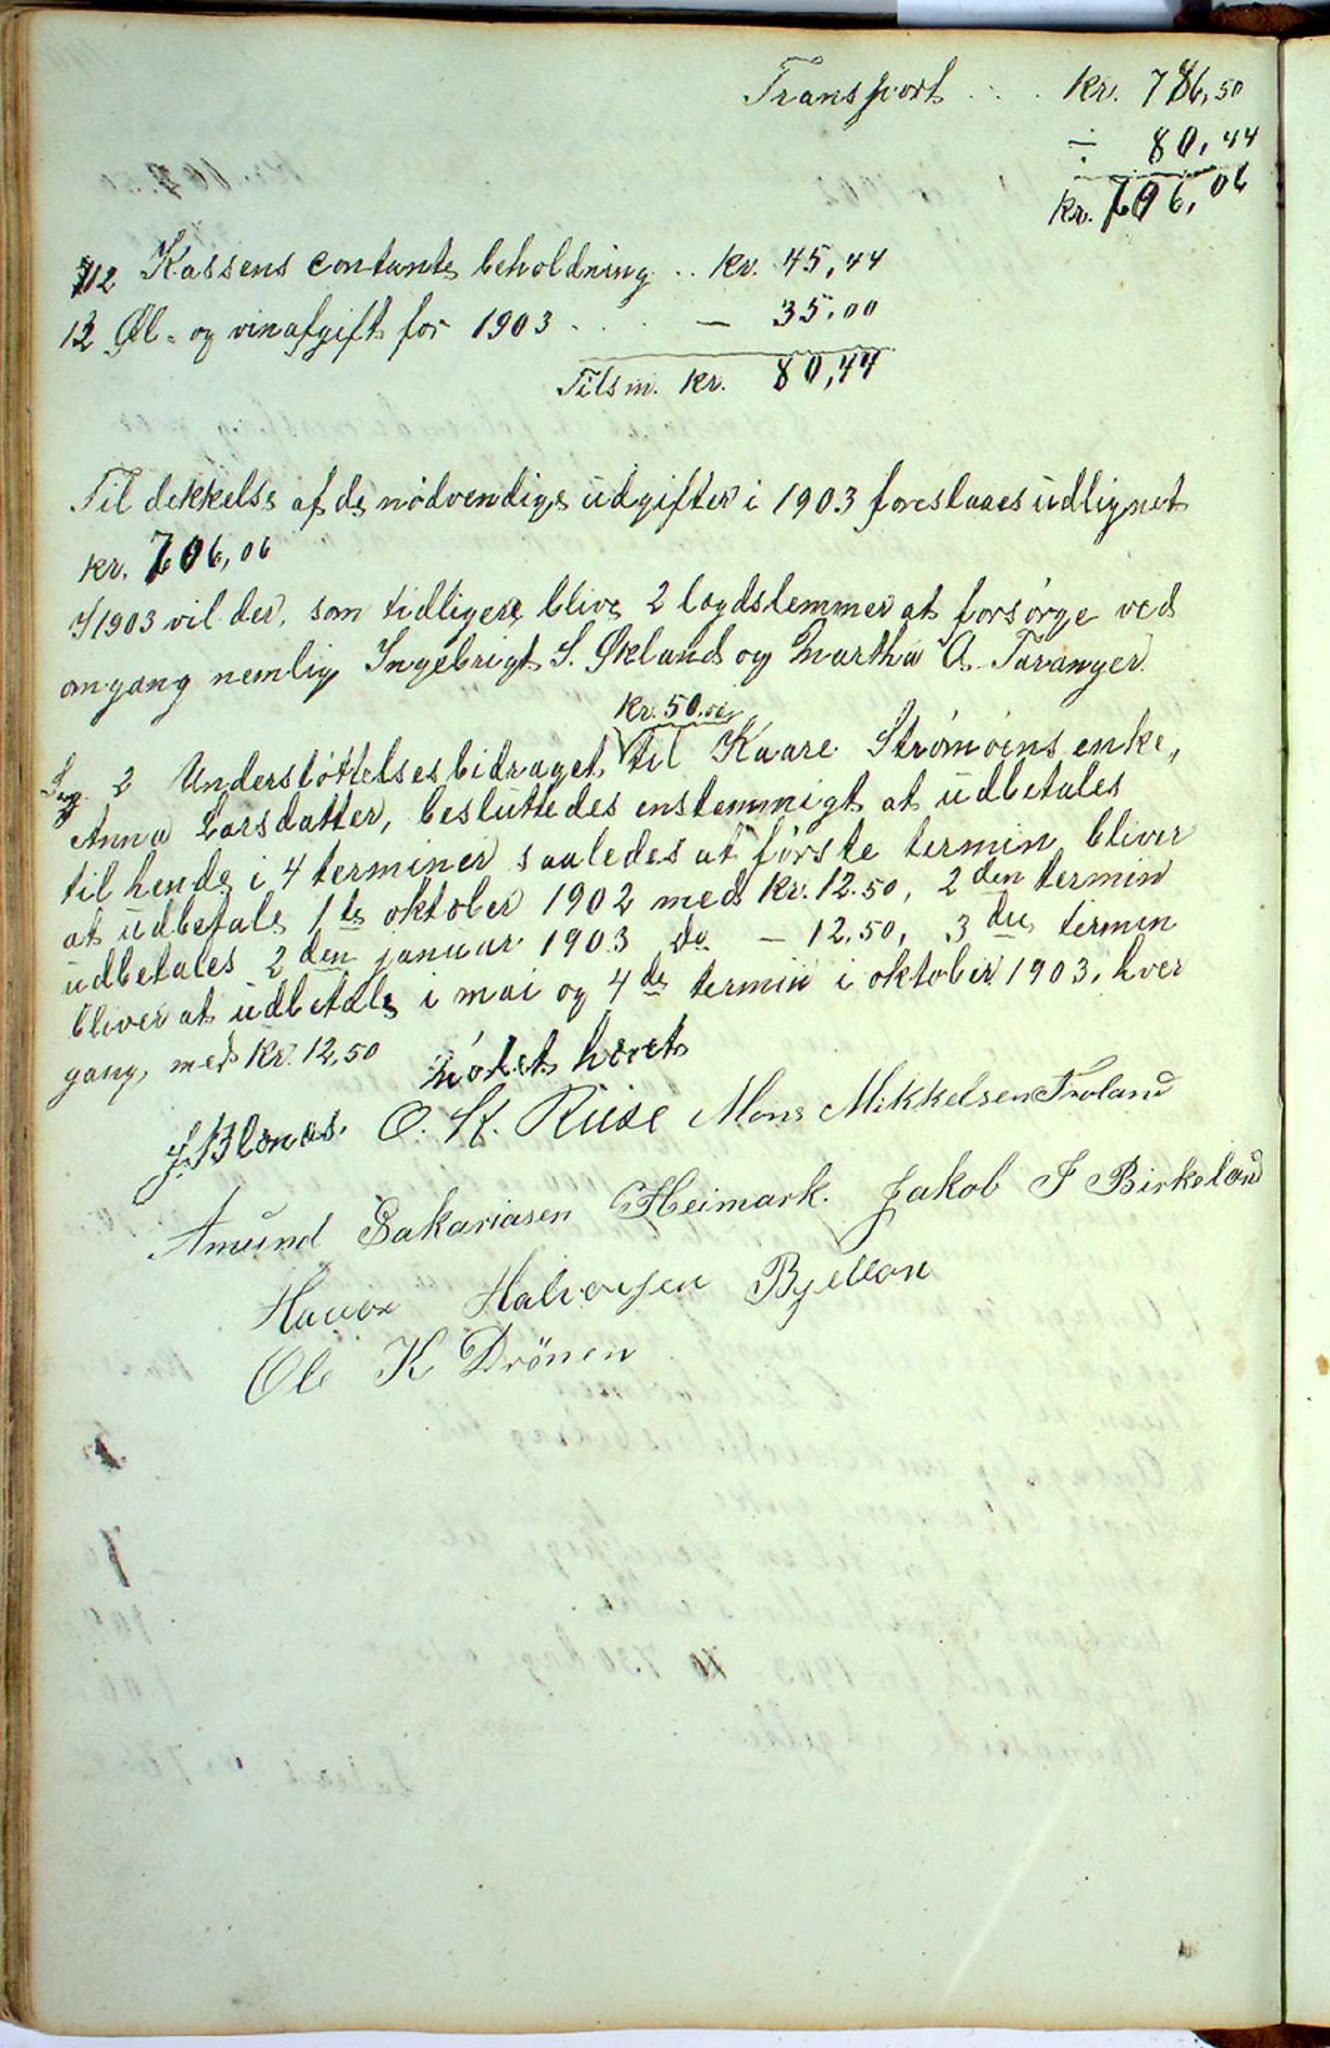 Transport . . . Kr. 786,50
÷ 80,44
Kr. 706,06
12 Kassens contante beholdning .. Kr. 45,44
13 Øl- og vinafgift for 1903 . . . — 35,00
Tilsm. Kr. 80,44
Til dekkelse af de nödvendige udgifter i 1903 foreslaaes udlignet
Kr. 706,06
I 1903 vil der, som tidligere, blive 2 lægdslemmer at forsörge ved
omgang nemlig Ingebrigt S. Økland og Martha A. Taranger.
Kr. 50.00
Sag 2 Understöttelsesbidraget til Kaare Strömöens enke,
Anna Larsdatter, besluttedes enstemmigt at udbetales
til hende i 4 terminer saaledes at förste termin bliver
at udbetale 1te oktober 1902 med Kr. 12.50, 2den termin
udbetales 2den januar 1903 do — 12,50, 3die termin
bliver at udbetale i mai og 4de termin i oktober 1903, hver
gang, med Kr. 12,50
Mödet hævet
J. Blænes. O. K. Riise Mons Mikkelsen Froland
Amund Sakariasen Heimark. Jakob J Birkeland
Haavor Halvorsen Bjellan
Ole K Drönen